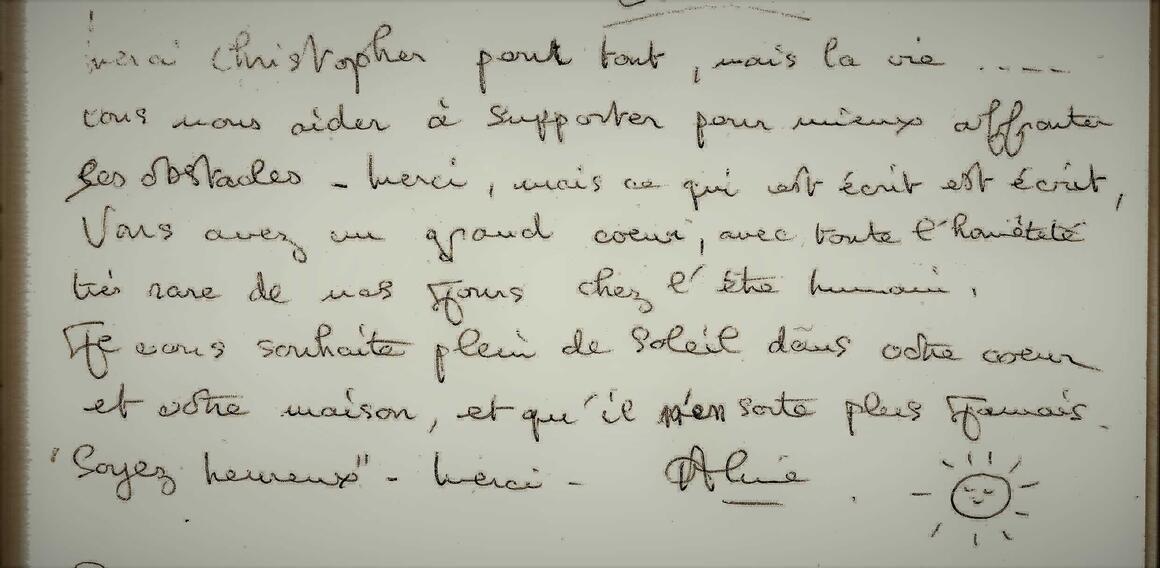 Merci Christopher pour tout, mais la vie ....
vous nous aider à supporter pour mieux affronter
Ses obstacles - Merci, mais ce qui est écrit est écrit,
Vous avez un grand coeur, avec toute l'honêteté
très rare de nos Jours chez l'être humain.
Je vous souhaite plein de Soleil dans votre coeur
et votre maison, et qu'il n'en sorte plus Jamais.
"Soyez heureux" - Merci - Aline